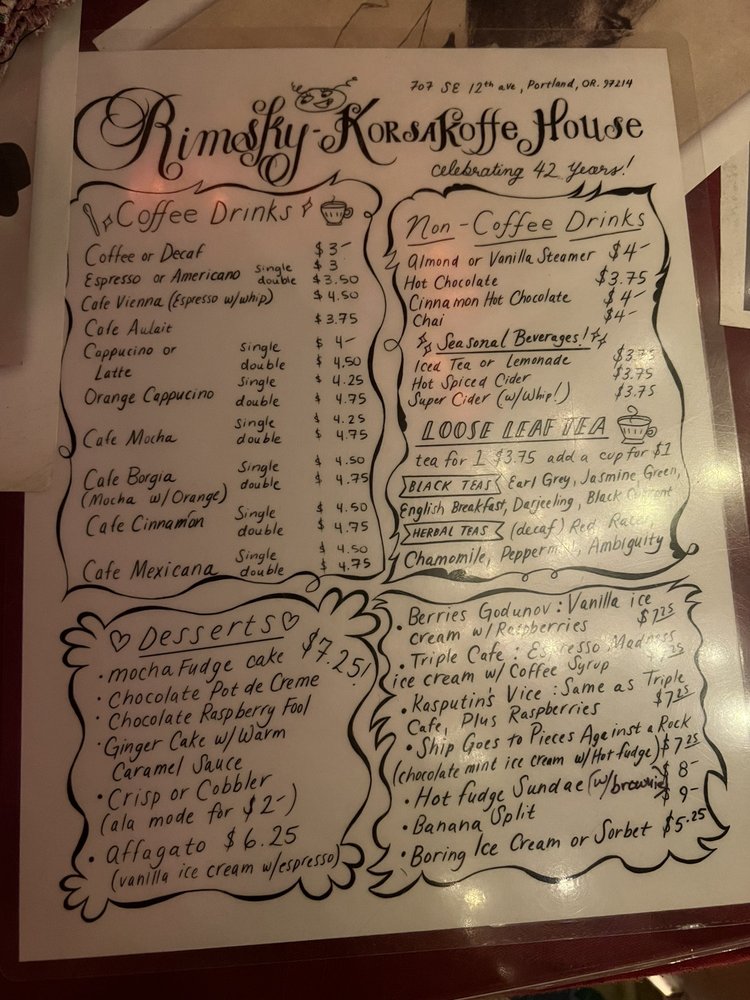 707 SE 12th ave, Portland, OR. 97214
Rimsky-KorsaKoffe House
celebrating 42 Years!
Coffee Drinks
Coffee or Decaf $3-
Espresso or Americano single $3
double $3.50
Cafe Vienna (Espresso w/whip) $4.50
Cafe Aulait $3.75
Cappucino or Single $4-
Latte double $4.50
Orange Cappucino Single $4.25
double $4.75
Cafe Mocha Single $4.25
double $4.75
Cafe Borgia Single $4.50
(Mocha w/Orange) double $4.75
Cafe Cinnamon Single $4.50
double $4.75
Cafe Mexicana Single $4.50
double $4.75
Non-Coffee Drinks
Almond or Vanilla Steamer $4-
Hot Chocolate $3.75
Cinnamon Hot Chocolate $4-
Chai $4-
Seasonal Beverages!
Iced Tea or Lemonade $3.75
Hot Spiced Cider $3.75
Super Cider (w/Whip!) $3.75
LOOSE LEAF TEA
tea for 1 $3.75 add a cup for $1
BLACK TEAS Earl Grey, Jasmine Green,
English Breakfast, Darjeeling, Black Current
HERBAL TEAS (decaf) Red
Chamomile, Peppermint, Ambiguity
Desserts
$7.25!
• mocha Fudge cake
• Chocolate Pot de Creme
• Chocolate Raspberry Fool
• Ginger Cake w/Warm
Caramel Sauce
• Crisp or Cobbler
(ala mode for $2-)
• Affagato $6.25
(vanilla ice cream w/espresso)
• Berries Godunov: Vanilla ice
cream w/Raspberries $7.25
• Triple Cafe: Espresso Madness
ice cream w/ Coffee Syrup
• Kasputin's Vice: Same as Triple
Cafe, Plus Raspberries $7.25
• Ship Goes to Pieces Against a Rock
(chocolate mint ice cream w/Hot fudge) $7.25
• Hot fudge Sundae $8-
(w/brownie) $9-
• Banana Split
• Boring Ice Cream or Sorbet $5.25